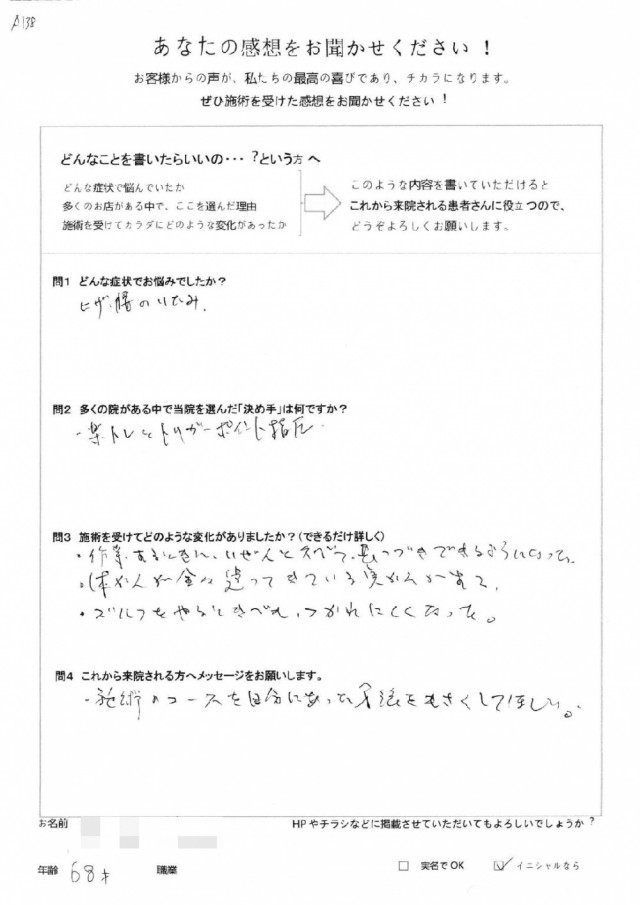 A138
あなたの感想をお聞かせください！
お客様からの声が、私たちの最高の喜びであり、チカラになります。
ぜひ施術を受けた感想をお聞かせください！
どんなことを書いたらいいの・・・？という方へ
どんな症状で悩んでいたか
多くのお店がある中で、ここを選んだ理由
施術を受けてカラダにどのような変化があったか
このような内容を書いていただけると
これから来院される患者さんに役立つので、
どうぞよろしくお願いします。
問1 どんな症状でお悩みでしたか？
ヒザ、腰のいたみ.
問2 多くの院がある中で当院を選んだ「決め手」は何ですか？
・楽トレとトリガーポイント指圧.
問3 施術を受けてどのような変化がありましたか？(できるだけ詳しく)
・作業するときに、いぜんとくらべて、長つづきできるようになった。
・体かんが全々違ってきている実かんがあって、
・ゴルフをやるときべも、つかれにくくなった。
問4 これから来院される方へメッセージをお願いします。
・施術のコースを自分にあった
してほしい。
お名前
HPやチラシなどに掲載させていただいてもよろしいでしょうか？
年齢 68才 職業
実名でOK イニシャルなら